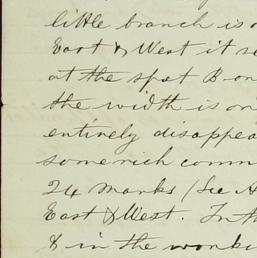 little branch is
East & West it
at the spot B on
the width is
entirely disappea
some rich comm
24 Marks (See A
East & West. In th
& in the workin